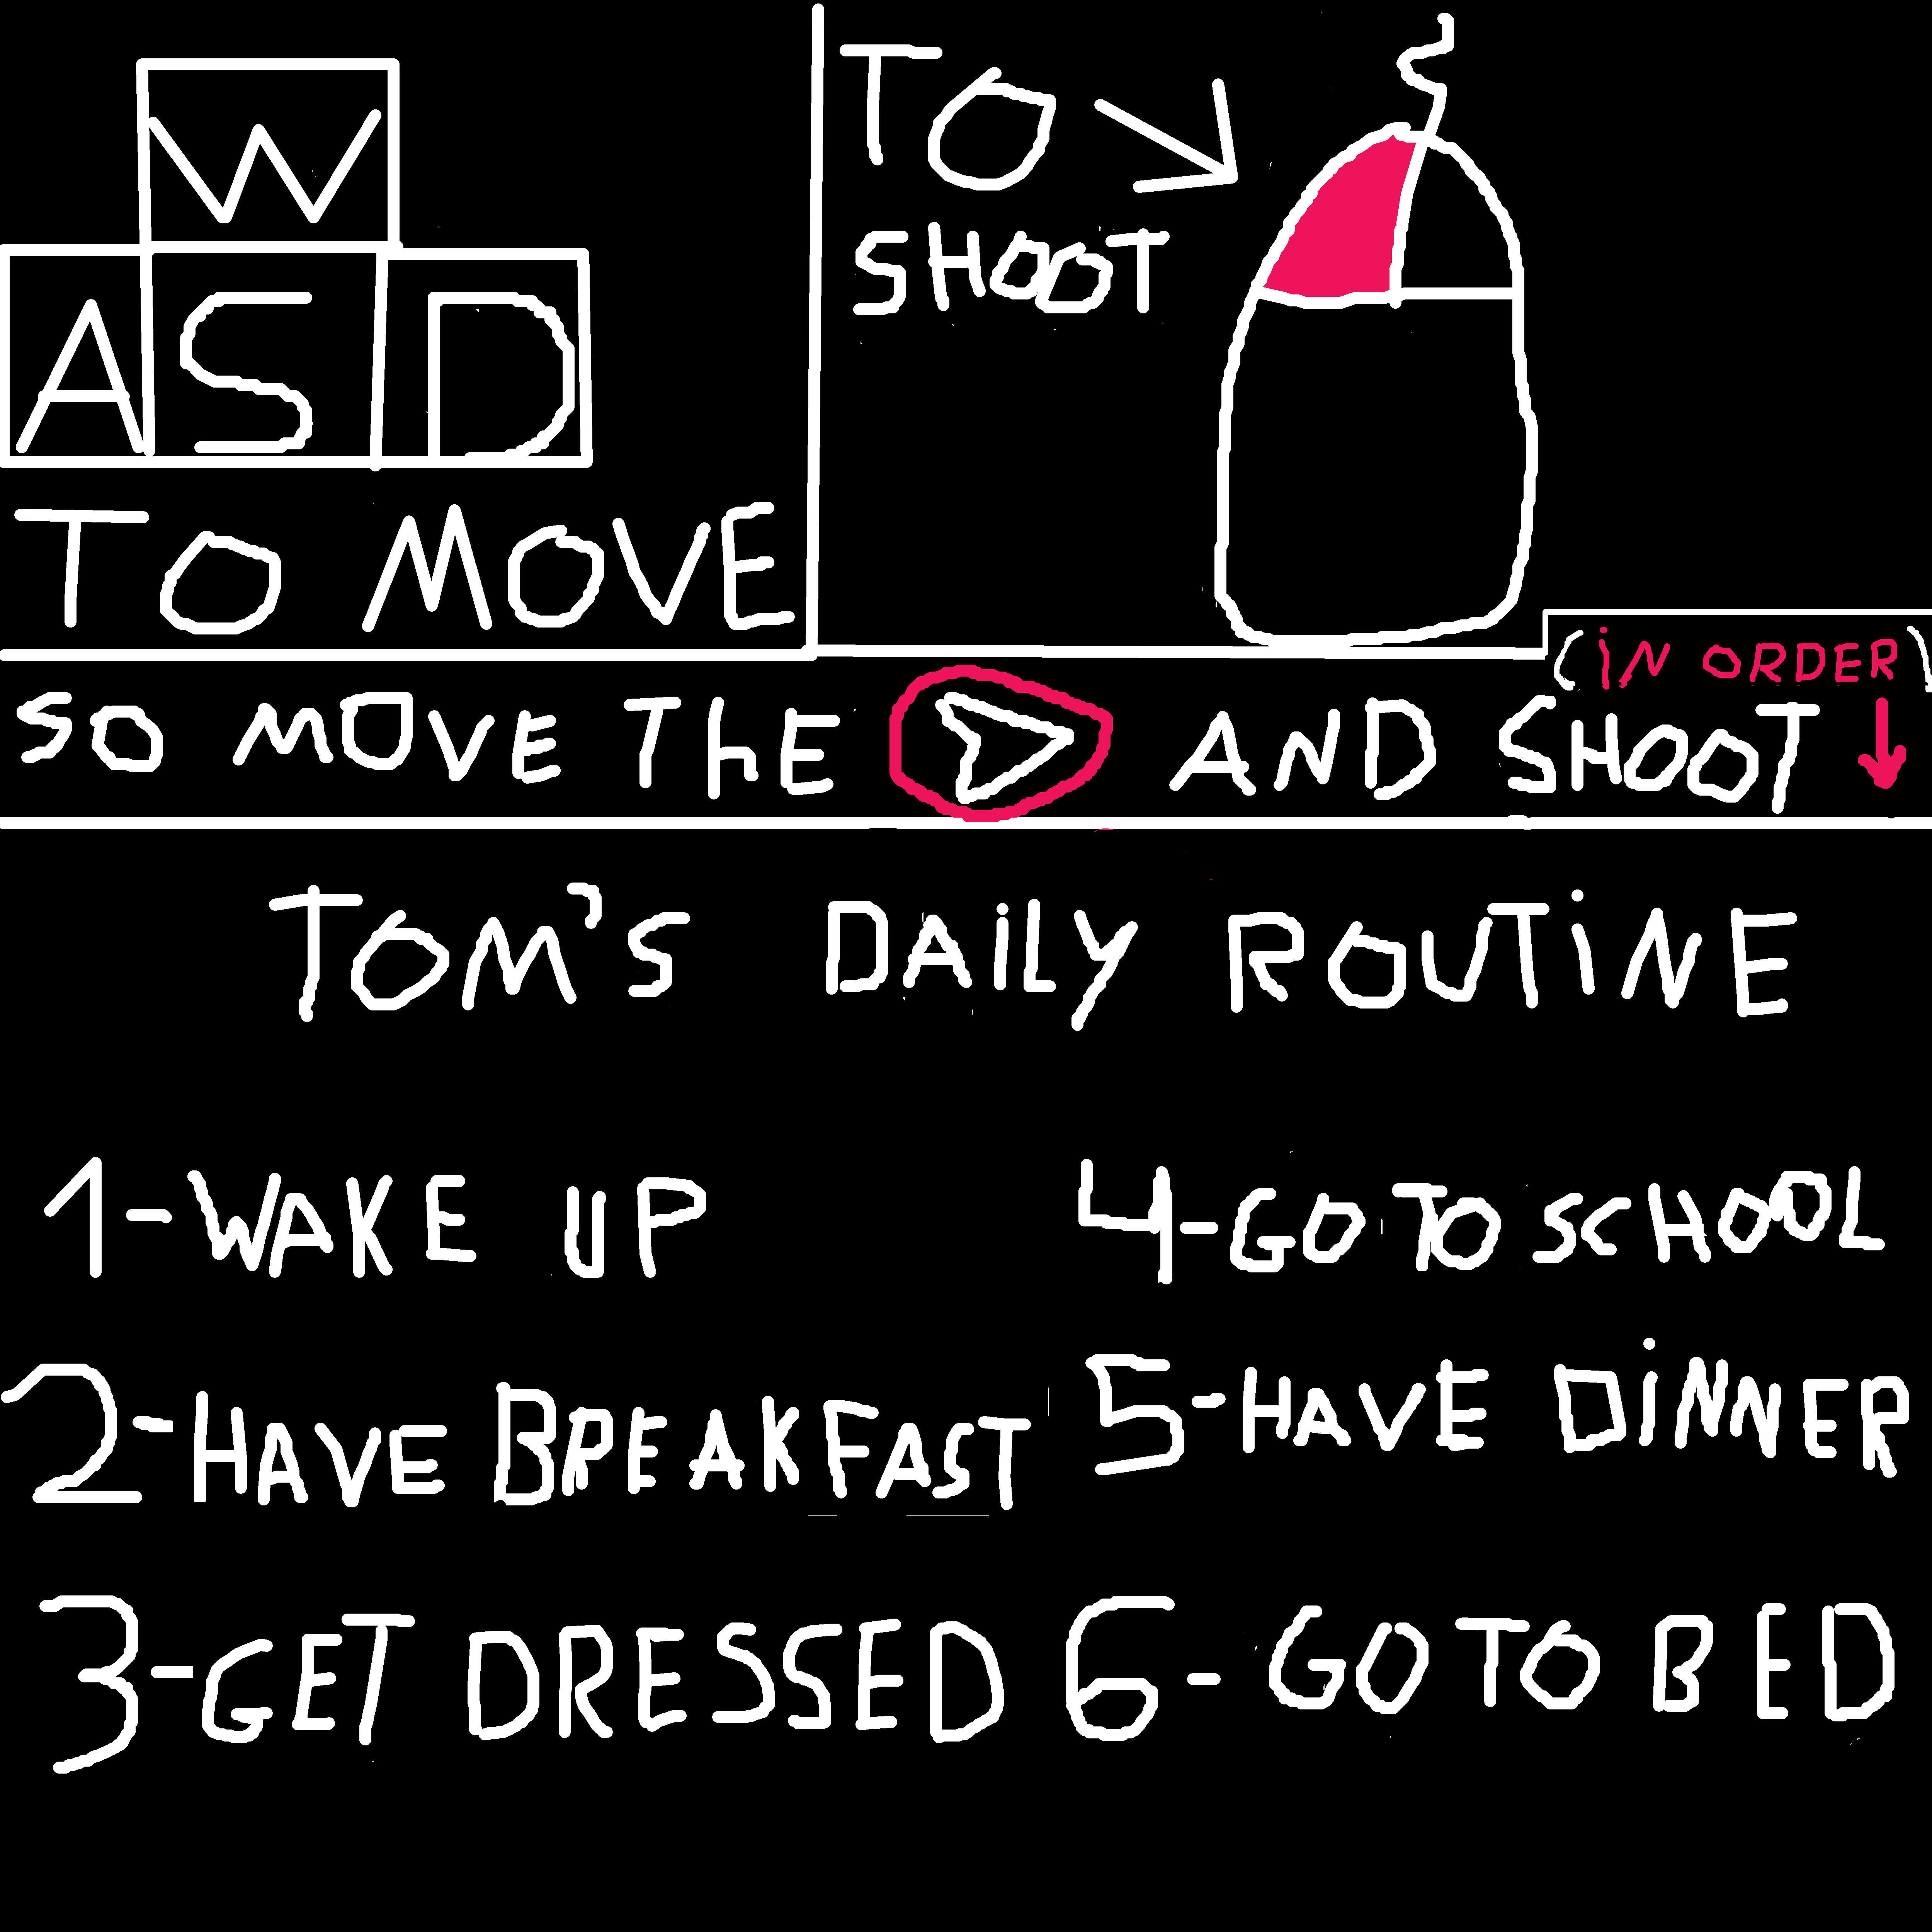 W
A S D
TO MOVE
TO
SHOOT
(iN ORDER)
SO MOVE THE AND SHOOT
TOM'S DAiLY ROUTiNE
1-WAKE UP
2-HAVE BREAKFAST
3-GET DRESSED
4-GO TO SCHOOL
5-HAVE DiNNER
6-GO TO BED